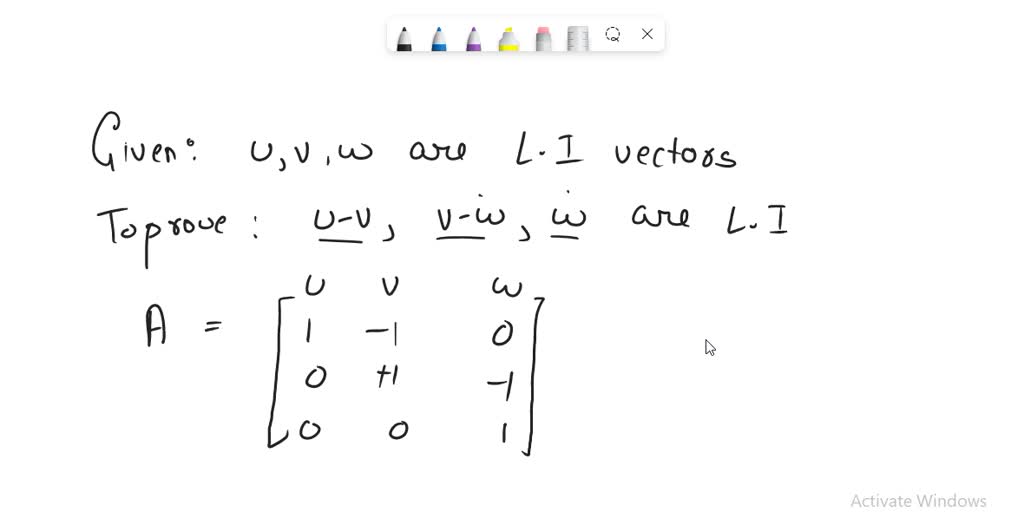 Given: u, v, w are L.I vectors
To prove: u-v, v-w, w are L.I
u v w
A = [1 -1 0
0 +1 -1
0 0 1]
Activate Windows